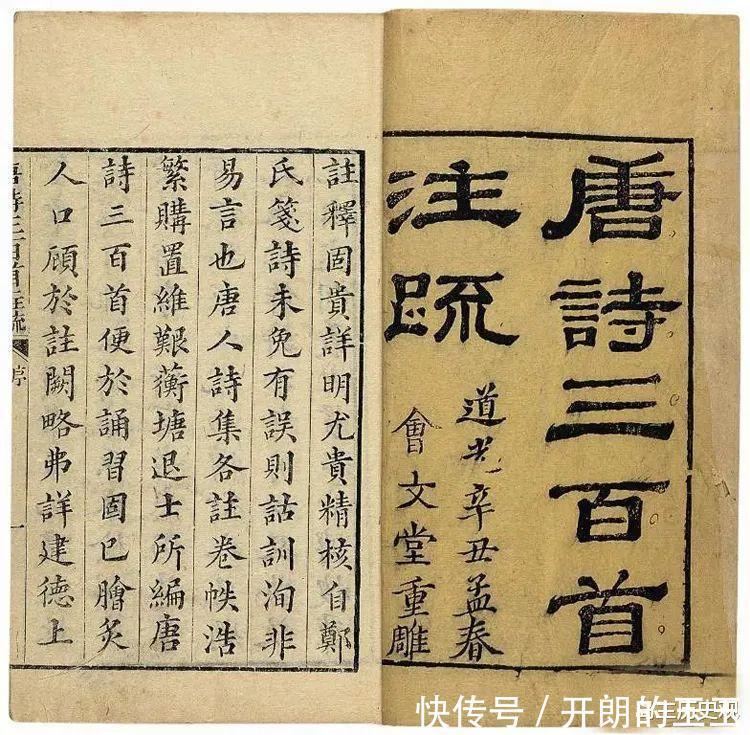 唐詩三百首
注疏
道光辛丑孟春
會文堂重雕
註釋固貴詳明尤貴精核自鄭
氏箋詩未免有誤則詁訓洵非
易言也唐人詩集各註卷帙浩
繁購置維艱蘅塘退士所編唐
詩三百首便於誦習固已膾炙
人口顧於註闕略弗詳建德上
唐詩三百首註疏 序 一
快传号 / 开朗的王王